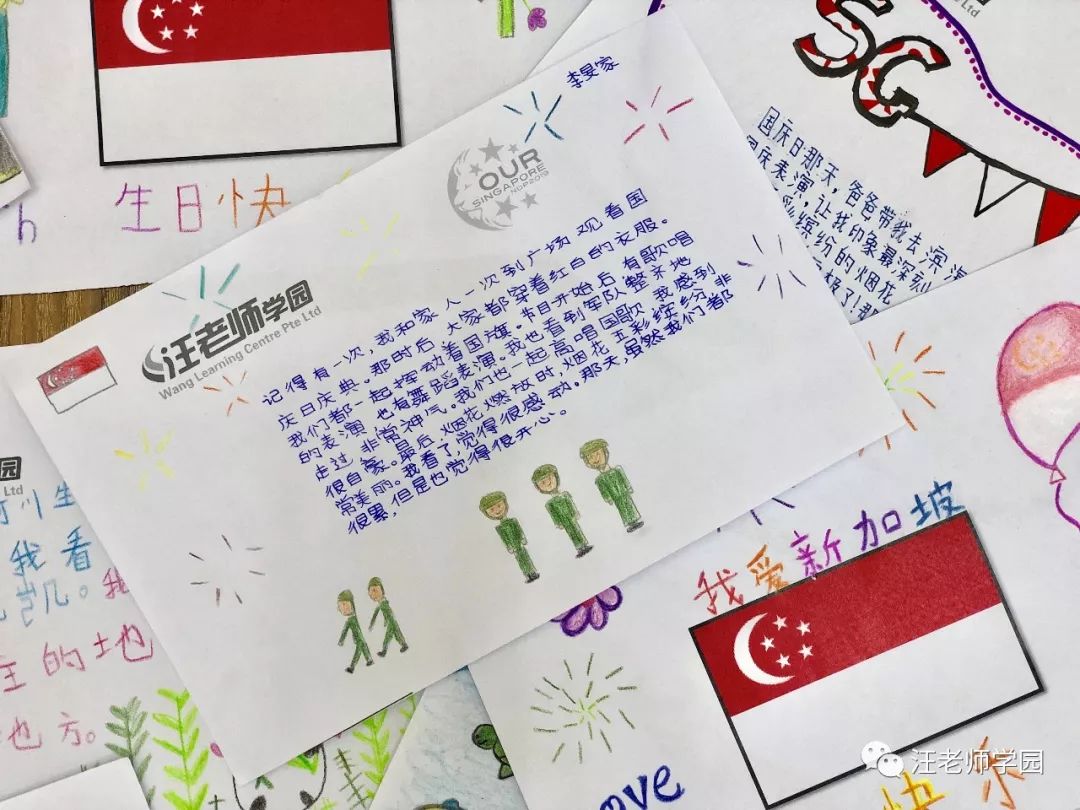 生日快
李旻家
OUR
SINGAPORE
NDP2019
汪老师学园
Wang Learning Centre Pte Ltd
记得有一次,我和家人一次到广场观看国
庆日庆典。那时后,大家都穿着红白的衣服。
我们都一起挥动着国旗。节目开始后,有歌唱
的表演,也有舞蹈表演。我也看到军队整齐地
走过,非常神气。我们也一起高唱国歌,我感到
很自豪。最后,烟花燃放时,烟花五彩缤纷,非
常美丽。我看了,觉得很感动。那天,虽然我们都
很累,但是也觉得很开心。
SG
国庆日那天,爸爸带我去滨海
国庆表演,让我印象最深刻
彩缤纷的烟花
极了!
园
Ltd
我看
的地
也方。
我爱新加坡
快乐
ove
汪老师学园